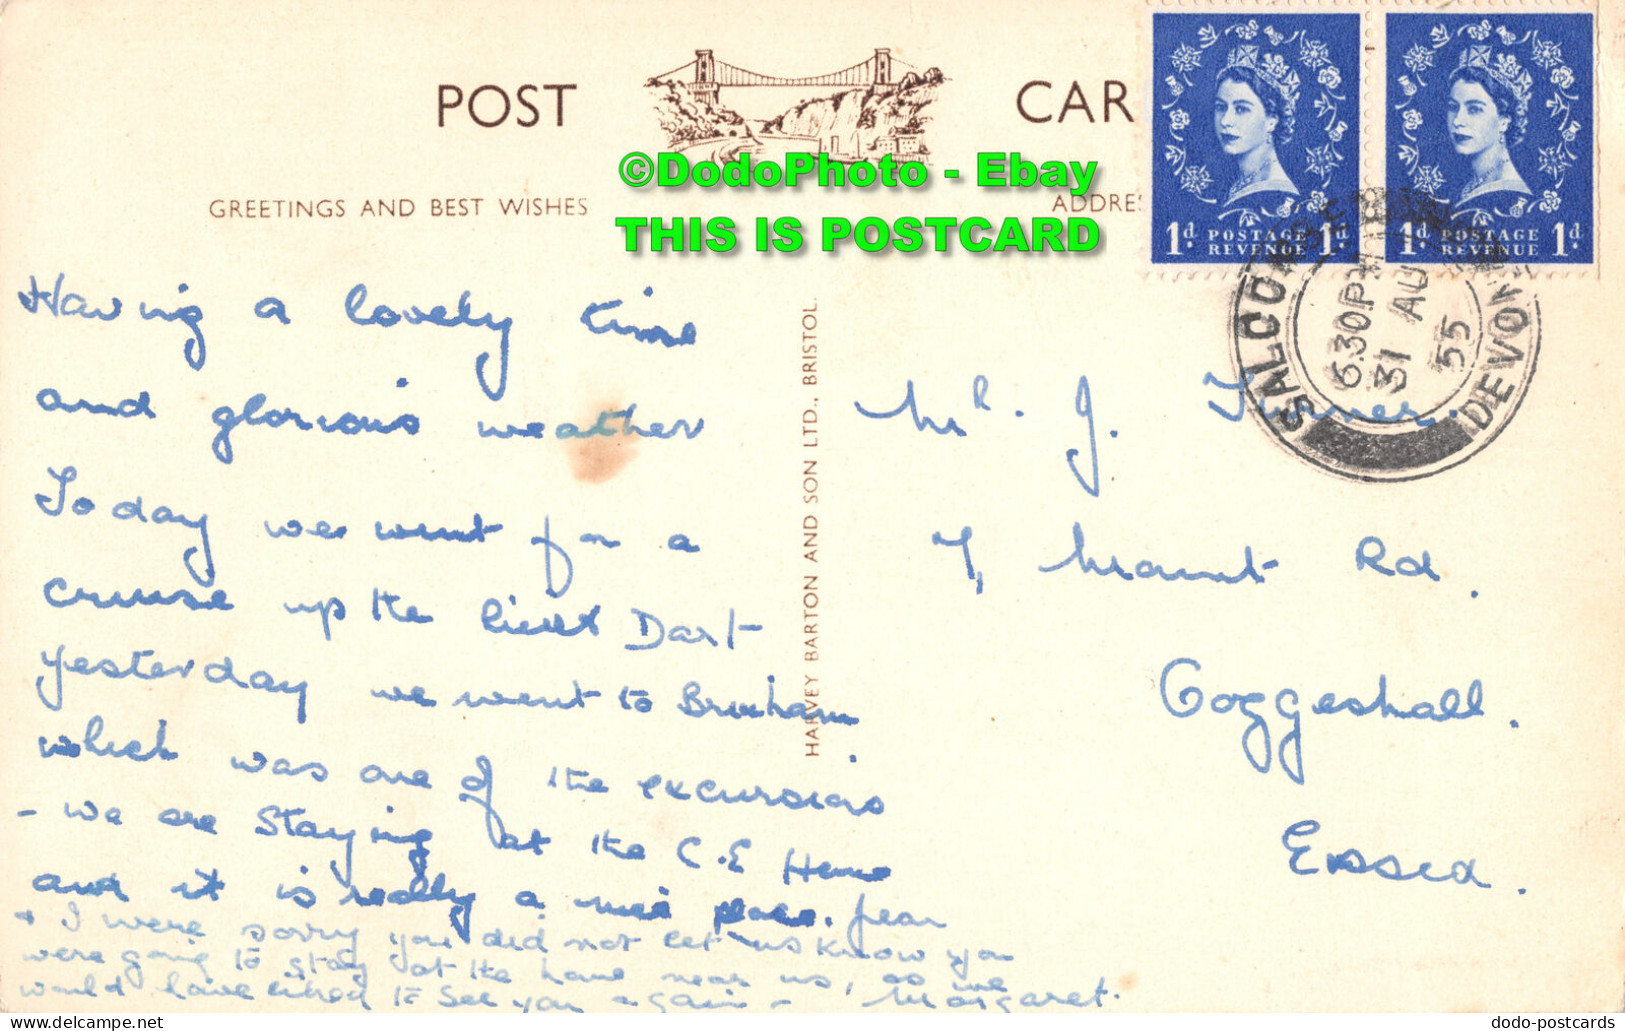 POST CAR
GREETINGS AND BEST WISHES
ADDRE
©DodoPhoto - Ebay
THIS IS POSTCARD
1d POSTAGE REVENUE 1d
1d POSTAGE REVENUE 1d
SALCOMBE
DEVON
6.30PM
31 AU
55
Having a lovely time
and glorious weather
Today we went for a
cruise up the River Dart
yesterday we went to Brixham
which was one of the excursions
- we are staying at the C.E Home
and it is really a nice place. Jean
+ I were sorry you did not let us know you
were going to stay at the home near us, as we
would have liked to see you again - Margaret.
HARVEY BARTON AND SON LTD., BRISTOL.
Mr. J. Turner.
7, Mount Rd.
Coggeshall.
Essex.
dodo-postcards